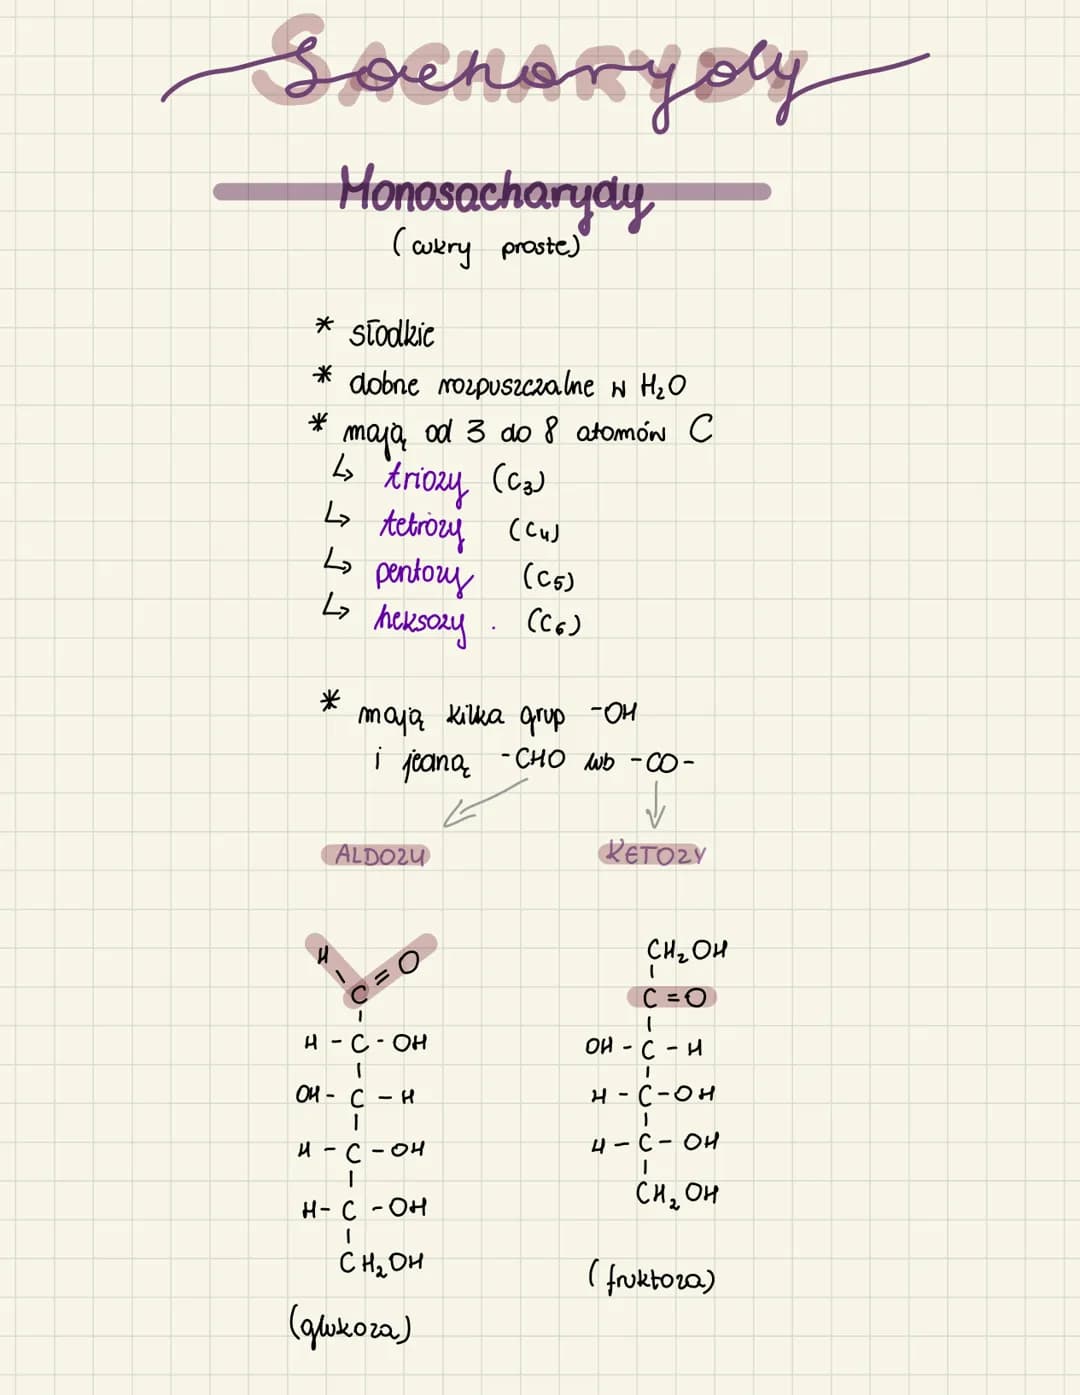 Sacharydy
SACHARYDY
Monosacharydy
(cukry proste)
* słodkie
* dobrze rozpuszczalne w H₂O
* mają od 3 do 8 atomów C
↳ triozy (C₃)
↳ tetrozy (C₄)
↳ pentozy (C₅)
↳ heksozy . (C₆)
* mają kilka grup -OH
i jedną -CHO lub -CO-
ALDOZY KETOZY
H O
C =
H - C - OH
OH - C - H
H - C - OH
H - C - OH
CH₂OH
(glukoza)
CH₂OH
C = O
OH - C - H
H - C - OH
H - C - OH
CH₂OH
(fruktoza)